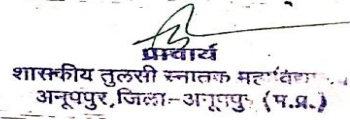 प्राचार्य
शासकीय तुलसी स्नातक महाविद्या
अनूपपुर, जिला-अनूपपुर (म.प्र.)